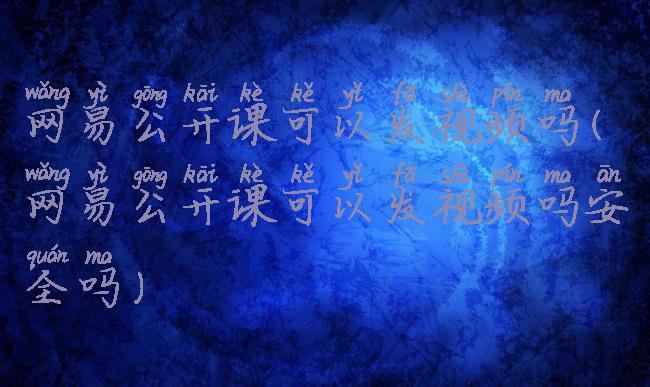 wǎng yì gōng kāi kè kě yǐ fā shì pín ma
网易公开课可以发视频吗(
wǎng yì gōng kāi kè kě yǐ fā shì pín ma ān
网易公开课可以发视频吗安
quán ma
全吗)